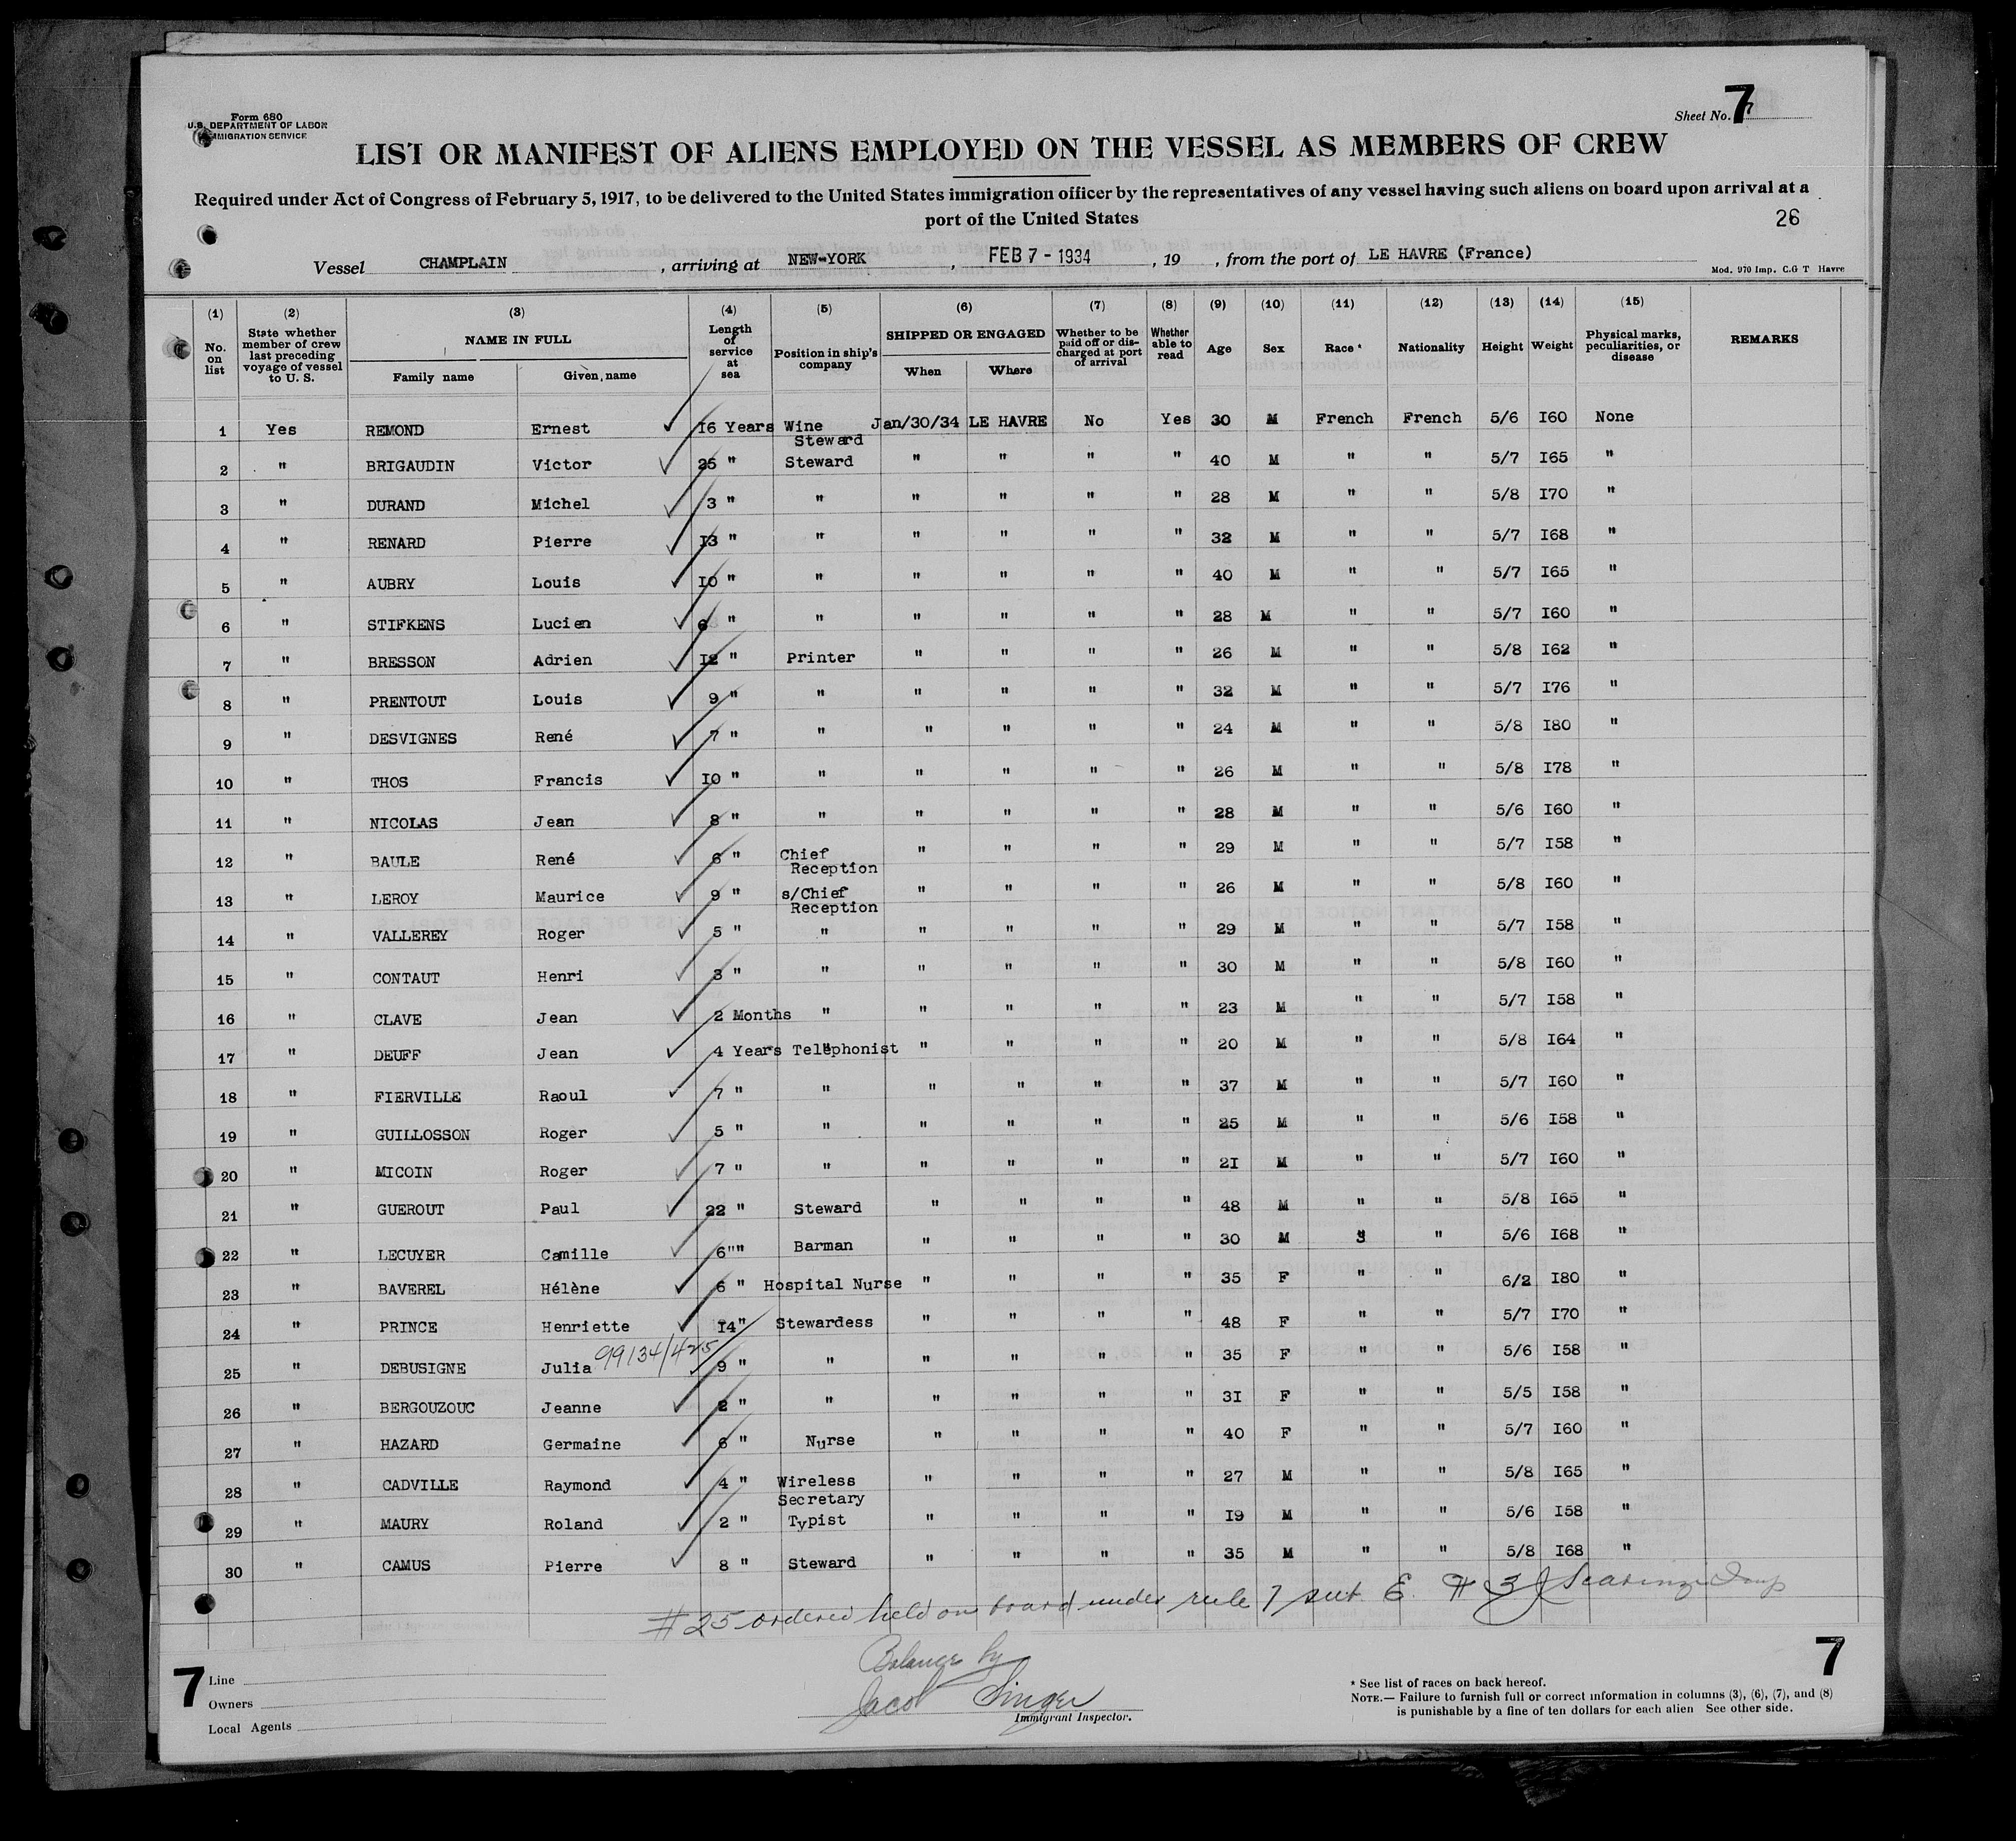 Form 680
U.S. DEPARTMENT OF LABOR
IMMIGRATION SERVICE
Sheet No. 7
7
LIST OR MANIFEST OF ALIENS EMPLOYED ON THE VESSEL AS MEMBERS OF CREW
Required under Act of Congress of February 5, 1917, to be delivered to the United States immigration officer by the representatives of any vessel having such aliens on board upon arrival at a
port of the United States
26
Vessel CHAMPLAIN , arriving at NEW-YORK , FEB 7 - 1934 , 19 , from the port of LE HAVRE (France)
Mod. 970 Imp. C.G T Havre
(1) (2) (3) (4) (5) (6) (7) (8) (9) (10) (11) (12) (13) (14) (15)
No. on list State whether member of crew last preceding voyage of vessel to U. S. NAME IN FULL Family name Given name Length of service at sea Position in ship's company SHIPPED OR ENGAGED When Where Whether to be paid off or discharged at port of arrival Whether able to read Age Sex Race * Nationality Height Weight Physical marks, peculiarities, or disease REMARKS
1 Yes REMOND Ernest 16 Years Wine Steward Jan/30/34 LE HAVRE No Yes 30 M French French 5/6 I60 None
2 " BRIGAUDIN Victor 25 " Steward " " " " 40 M " " 5/7 I65 "
3 " DURAND Michel 3 " " " " " " 28 M " " 5/8 I70 "
4 " RENARD Pierre I3 " " " " " " 32 M " " 5/7 I68 "
5 " AUBRY Louis IO " " " " " " 40 M " " 5/7 I65 "
6 " STIFKENS Lucien 6 " " " " " " 28 M " " 5/7 I60 "
7 " BRESSON Adrien I2 " Printer " " " " 26 M " " 5/8 I62 "
8 " PRENTOUT Louis 9 " " " " " " 32 M " " 5/7 I76 "
9 " DESVIGNES René 7 " " " " " " 24 M " " 5/8 I80 "
10 " THOS Francis IO " " " " " " 26 M " " 5/8 I78 "
11 " NICOLAS Jean 8 " " " " " " 28 M " " 5/6 I60 "
12 " BAULE René 6 " Chief Reception " " " " 29 M " " 5/7 I58 "
13 " LEROY Maurice 9 " s/Chief Reception " " " " 26 M " " 5/8 I60 "
14 " VALLEREY Roger 5 " " " " " " 29 M " " 5/7 I58 "
15 " CONTAUT Henri 3 " " " " " " 30 M " " 5/8 I60 "
16 " CLAVE Jean 2 Months " " " " " 23 M " " 5/7 I58 "
17 " DEUFF Jean 4 Years Telephonist " " " " 20 M " " 5/8 I64 "
18 " FIERVILLE Raoul 7 " " " " " " 37 M " " 5/7 I60 "
19 " GUILLOSSON Roger 5 " " " " " " 25 M " " 5/6 I58 "
20 " MICOIN Roger 7 " " " " " " 2I M " " 5/7 I60 "
21 " GUEROUT Paul 22 " Steward " " " " 48 M " " 5/8 I65 "
22 " LECUYER Camille 6"" Barman " " " " 30 M " " 5/6 I68 "
23 " BAVEREL Hélène 6 " Hospital Nurse " " " " 35 F " " 6/2 I80 "
24 " PRINCE Henriette I4" Stewardess " " " " 48 F " " 5/7 I70 "
25 " DEBUSIGNE Julia 99134/425 9 " " " " " " 35 F " " 5/6 I58 "
26 " BERGOUZOUC Jeanne 2 " " " " " " 3I F " " 5/5 I58 "
27 " HAZARD Germaine 6 " Nurse " " " " 40 F " " 5/7 I60 "
28 " CADVILLE Raymond 4 " Wireless " " " " 27 M " " 5/8 I65 "
29 " MAURY Roland 2 " Secretary Typist " " " " I9 M " " 5/6 I58 "
30 " CAMUS Pierre 8 " Steward " " " " 35 M " " 5/8 I68 "
# 25 ordered held on board under rule 7 sub. E # 3
Balance by
Jacob Singer
Immigrant Inspector.
7
Line
Owners
Local Agents
7
* See list of races on back hereof.
NOTE.— Failure to furnish full or correct information in columns (3), (6), (7), and (8)
is punishable by a fine of ten dollars for each alien See other side.